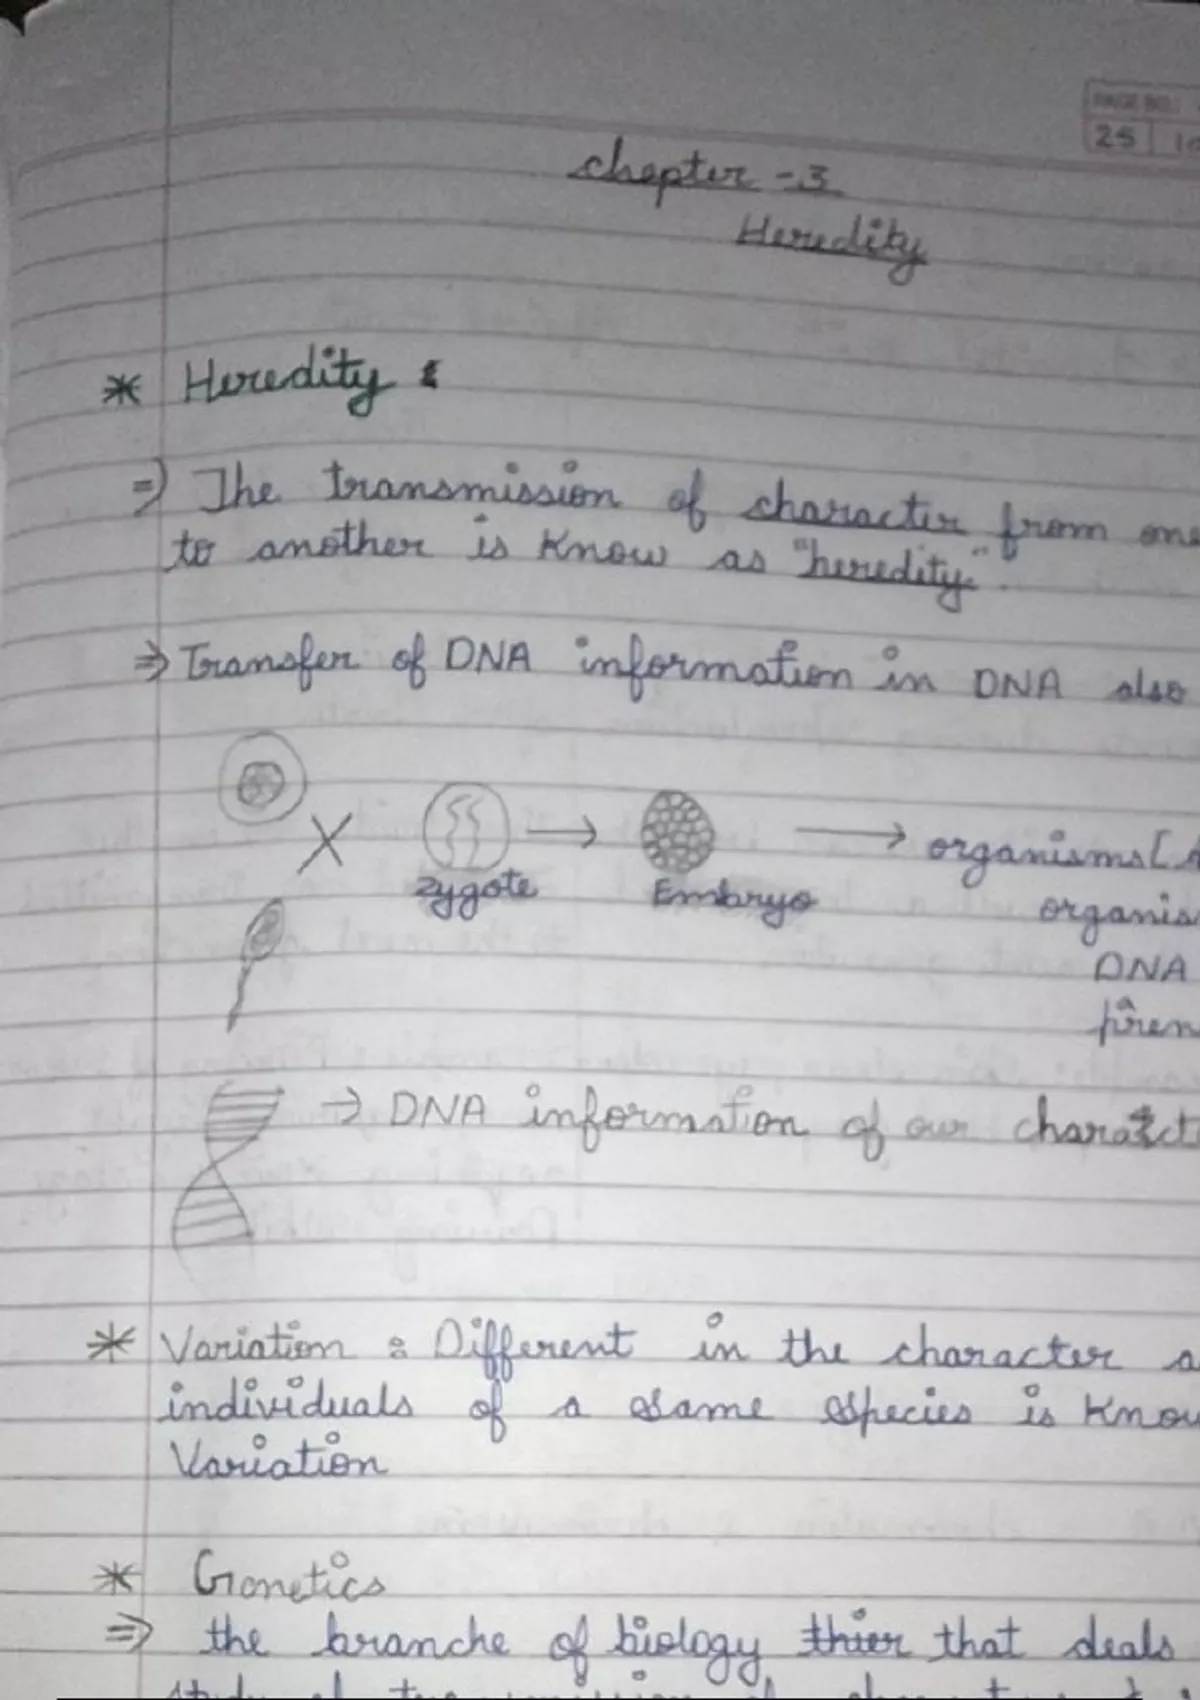 PAGE NO.:
25
chapter - 3
Heredity
* Heredity :
=) The transmission of character from one
to another is Know as "heredity."
=> Transfer of DNA information in DNA also
zygote
Embryo
organisms [
organis
DNA
→ DNA information of our charact
* Variation : Different in the character
individuals of a same species is Know
Variation
* Genetics
=> the branche of biology thier that deals